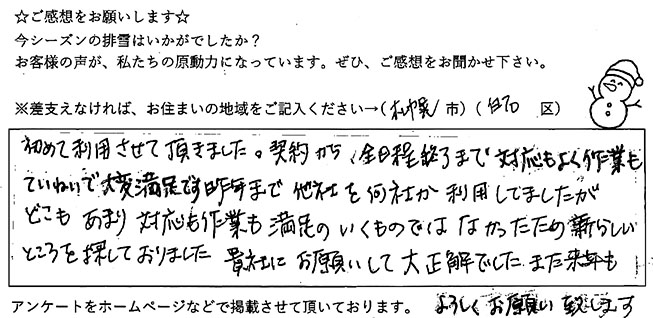 ☆ご感想をお願いします☆
今シーズンの排雪はいかがでしたか？
お客様の声が、私たちの原動力になっています。ぜひ、ご感想をお聞かせ下さい。
※差支えなければ、お住まいの地域をご記入ください→(札幌 市) (白石 区)
初めて利用させて頂きました。契約から、全日程終了まで対応もよく作業も
ていねいで大変満足です昨年まで他社を何社か利用してましたが
どこもあまり対応も作業も満足のいくものではなかったため新らしい
ところを探しておりました 貴社にお願いして大正解でした また来年も
よろしくお願い致します
アンケートをホームページなどで掲載させて頂いております。